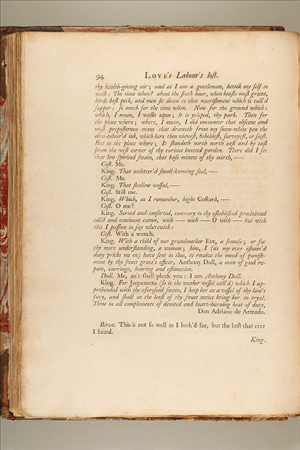 94 LOVE's Labour's lost.
thy health-giving air; and as I am a gentleman, betook my self to
walk; The time when? about the sixth hour, when beasts most graze,
birds best peck, and men sit down to that nourishment which is call'd
supper: so much for the time when. Now for the ground which:
which, I mean, I walkt upon; it is ycleped, thy park. Then for
the place where; where, I mean, I did encounter that obscene and
most preposterous event that draweth from my snow-white pen the
ebon-colour'd ink, which here thou viewest, beholdest, surveyest, or seest.
But to the place where; It standeth north north east and by east
from the west corner of thy curious knotted garden. There did I see
that low spirited swain, that base minow of thy mirth,—
Cost. Me.
King. That unletter'd small-knowing soul,—
Cost. Me.
King. That shallow vassal,—
Cost. Still me.
King. Which, as I remember, hight Costard,—
Cost. O me!
King. Sorted and consorted, contrary to thy established proclaimed
edict and continent canon, with — with — O with — but with
this I passion to say wherewith:
Cost. With a wench.
King. With a child of our grandmother Eve, a female; or for
thy more understanding, a woman; him, I (as my ever esteem'd
duty pricks me on) have sent to thee, to receive the meed of punish-
ment by thy sweet grace's officer, Anthony Dull, a man of good re-
pute, carriage, bearing and estimation.
Dull. Me, an't shall please you: I am Anthony Dull.
King. For Jaquenetta (so is the weaker vessel call'd) which I ap-
prehended with the aforesaid swain, I keep her as a vessel of thy law's
fury, and shall at the least of thy sweet notice bring her to tryal.
Thine in all complements of devoted and heart-burning heat of duty,
Don Adriano de Armado.
Biron. This is not so well as I look'd for, but the best that ever
I heard.
King.